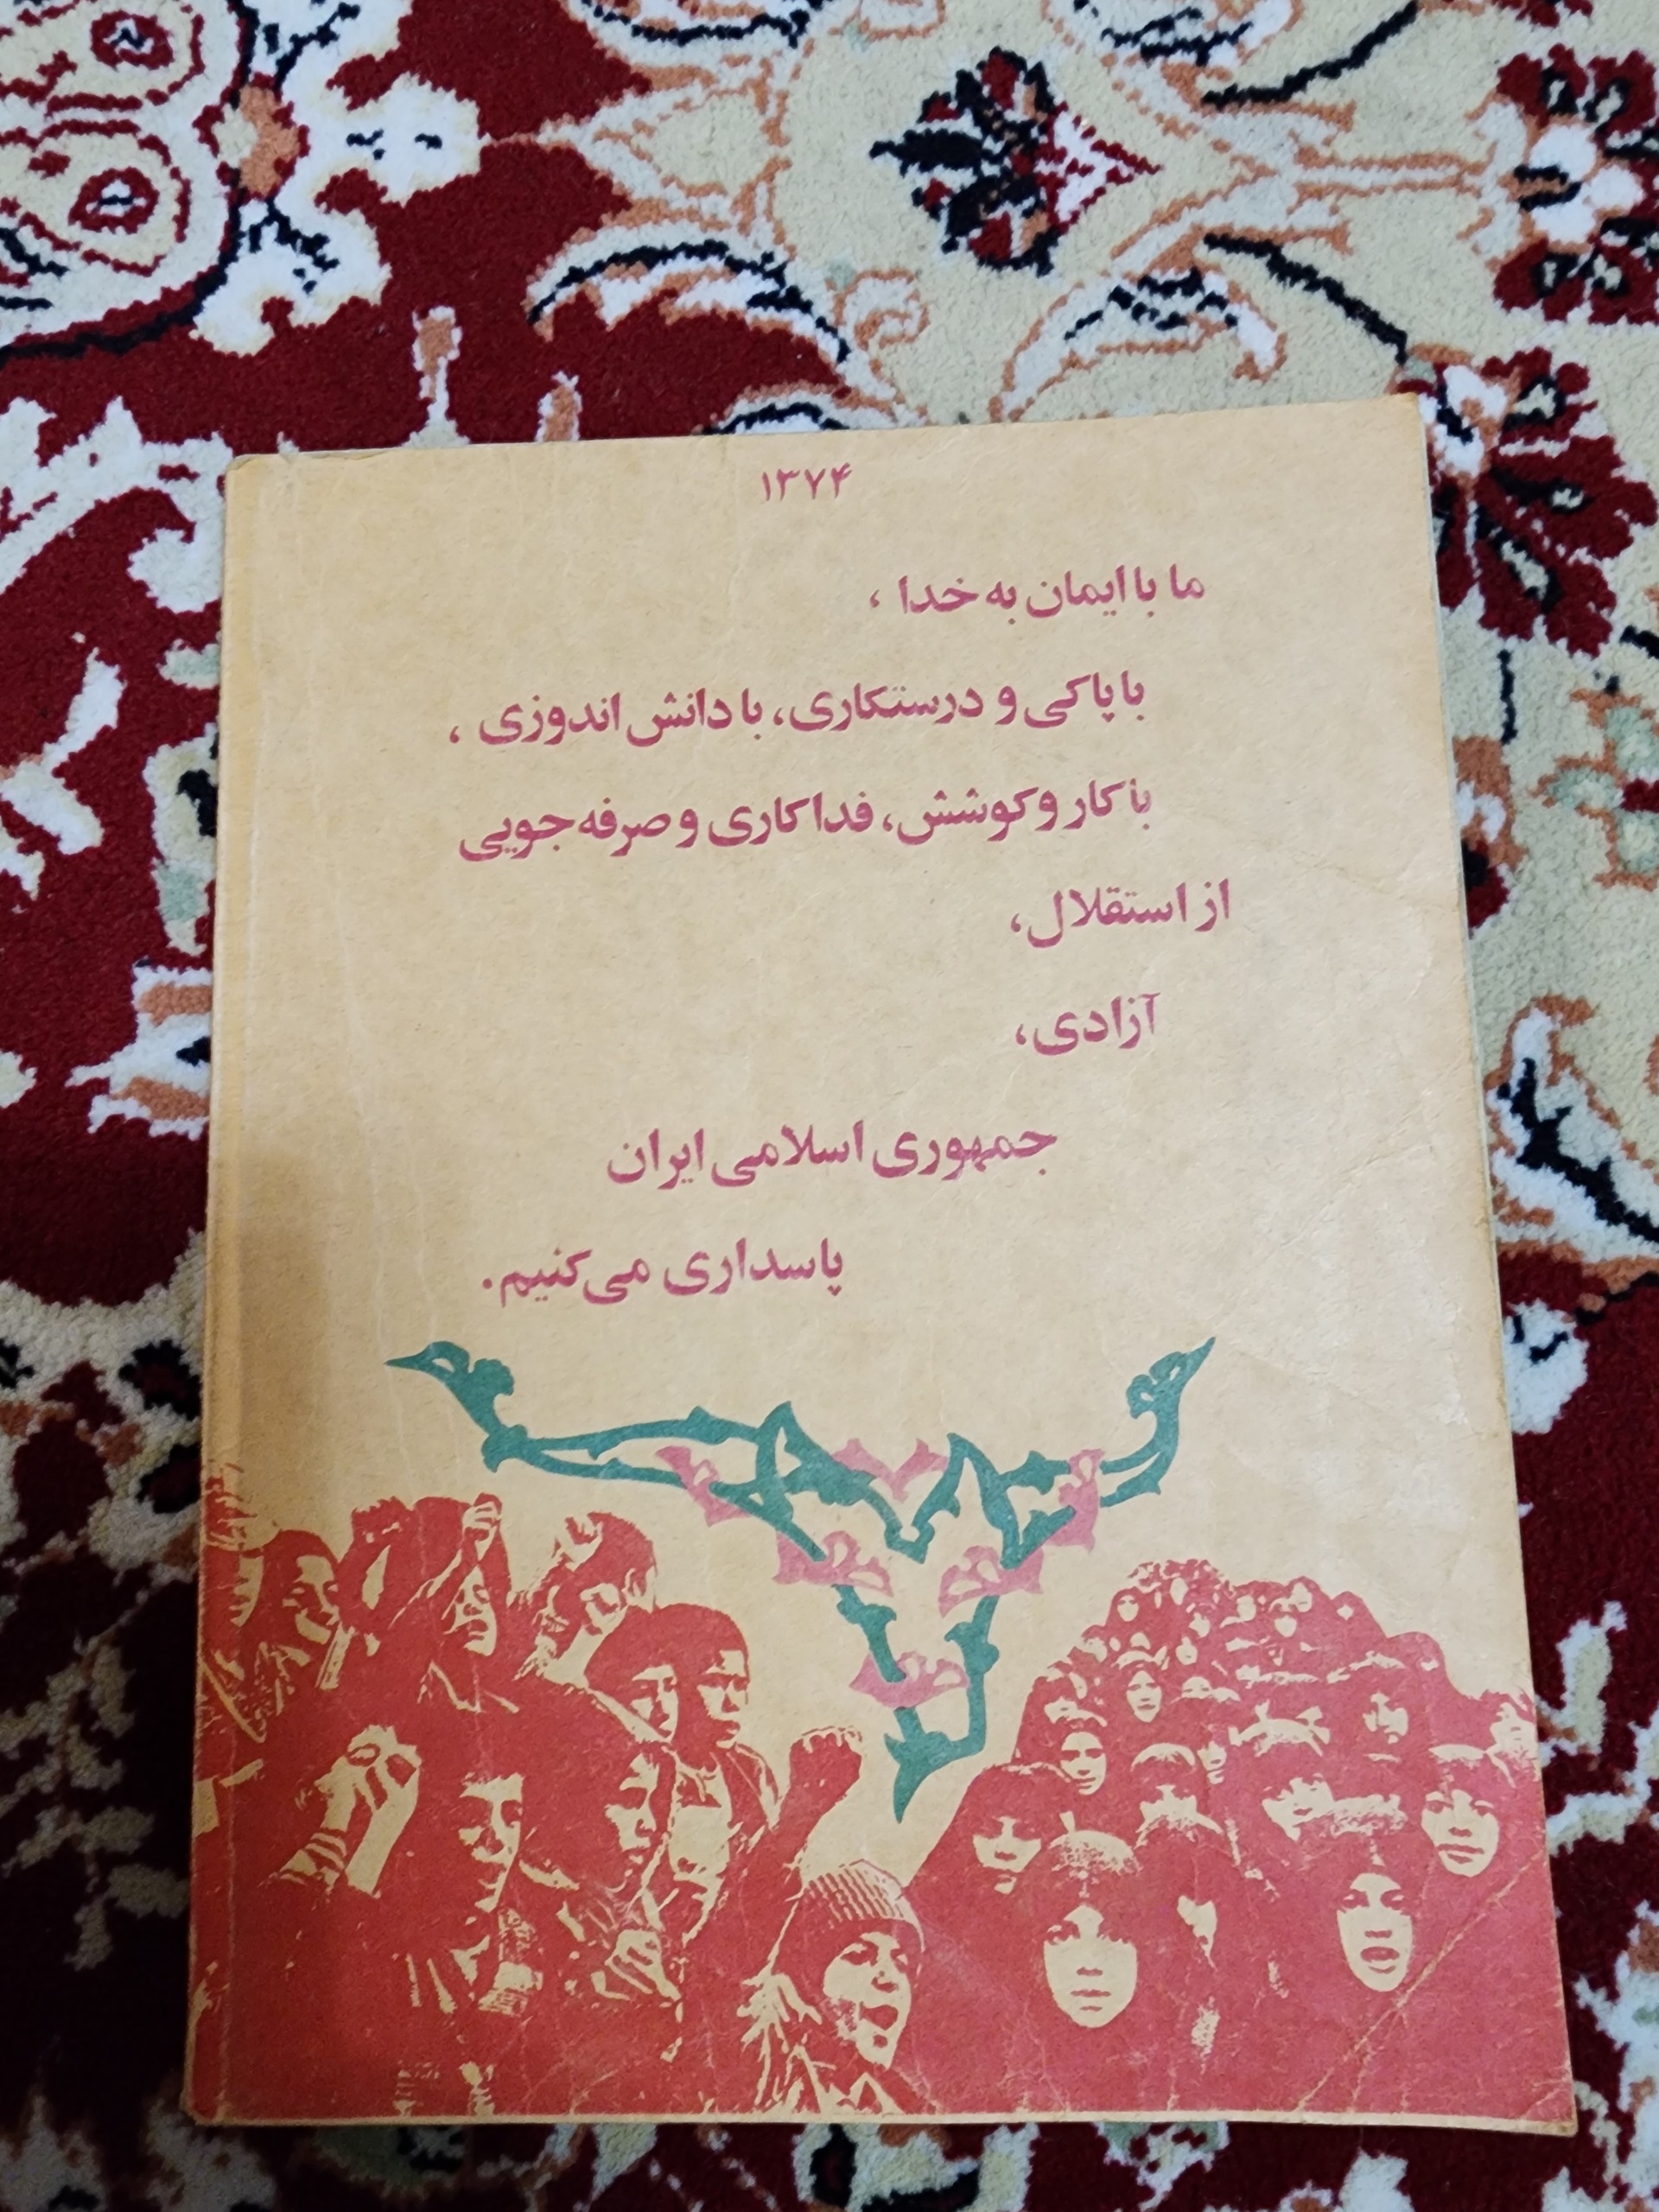 ۱۳۷۴
ما با ایمان به خدا ،
با پاکی و درستکاری، با دانش اندوزی ،
با کار و کوشش، فداکاری و صرفه جویی
از استقلال،
آزادی،
جمهوری اسلامی ایران
پاسداری می کنیم.